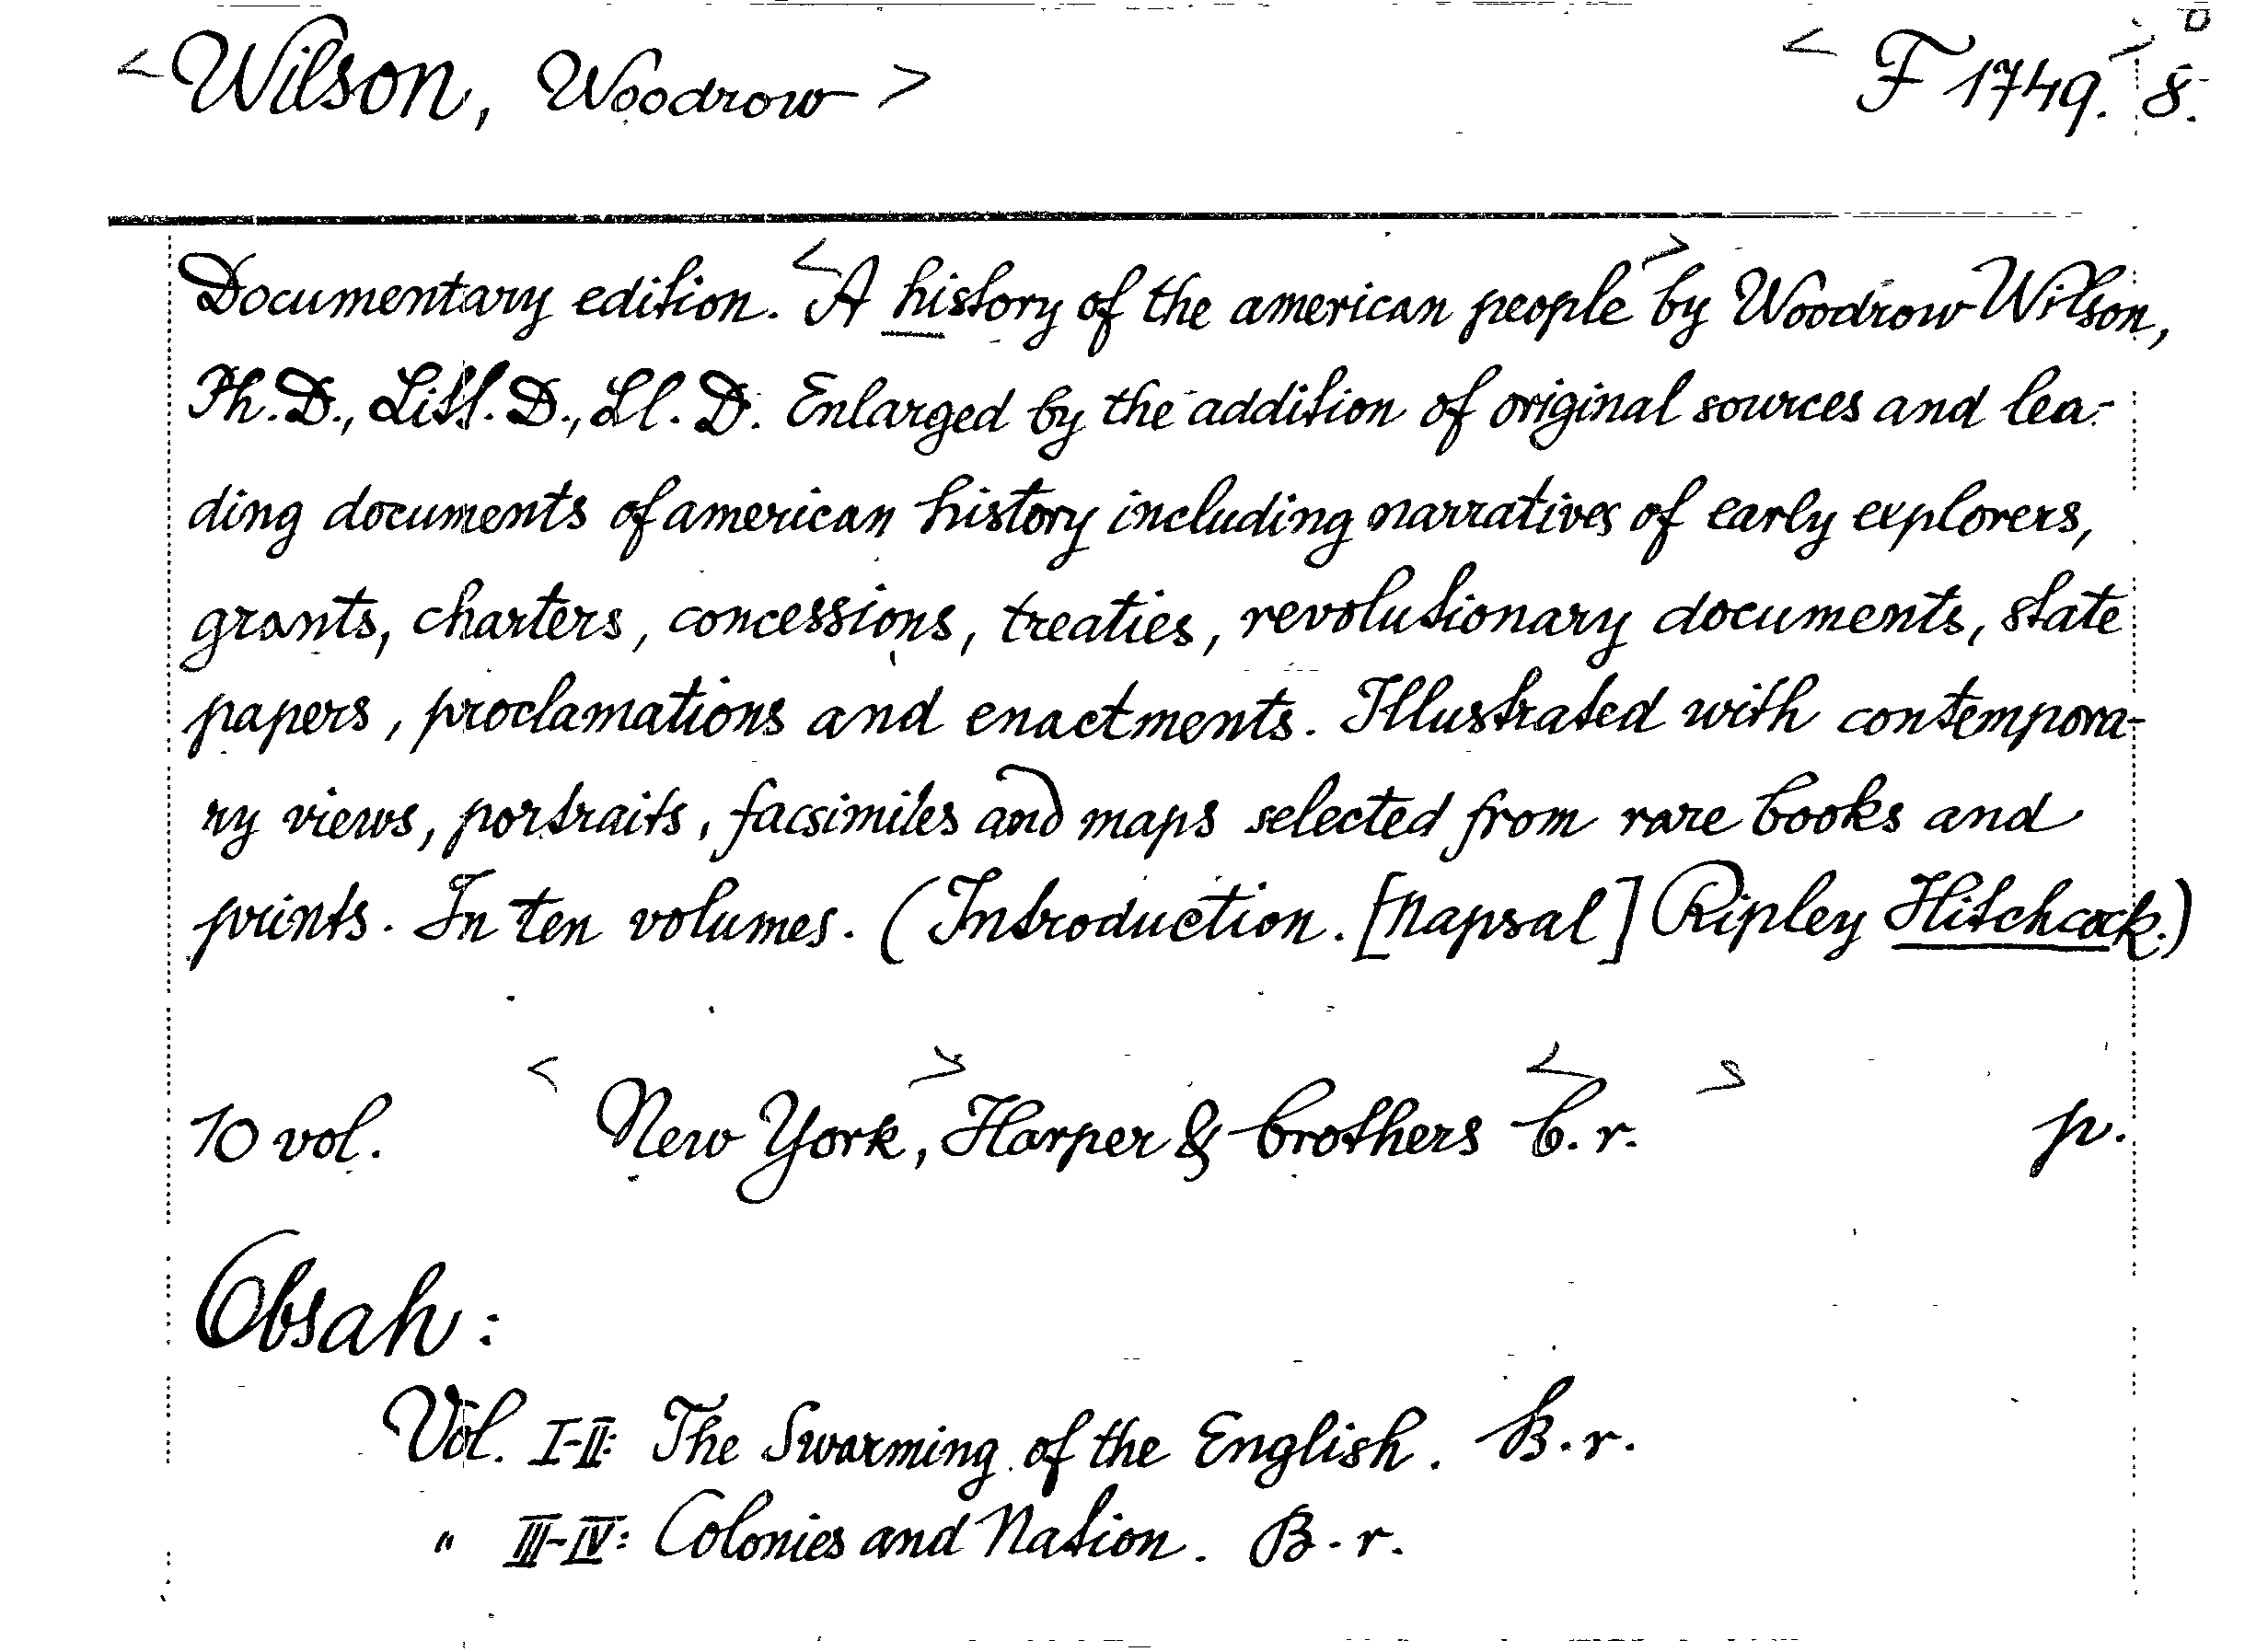 <Wilson, Woodrow> <F 1749.> 8.°
Documentary edition. <A history of the american people> by Woodrow Wilson,
Ph. D., Litt. D., Ll. D. Enlarged by the addition of original sources and lea-
ding documents of american history including narratives of early explorers,
grants, charters, concessions, treaties, revolutionary documents, state
papers, proclamations and enactments. Illustrated with contempora-
ry views, portraits, facsimiles and maps selected from rare books and
prints. In ten volumes. (Introduction. [Napsal] Ripley Hitchcock.)
10 vol. <New York,> Harper & brothers <b. r.> p.
Obsah:
Vol. I-II: The Swarming of the English. B. r.
" III-IV: Colonies and Nation. B. r.